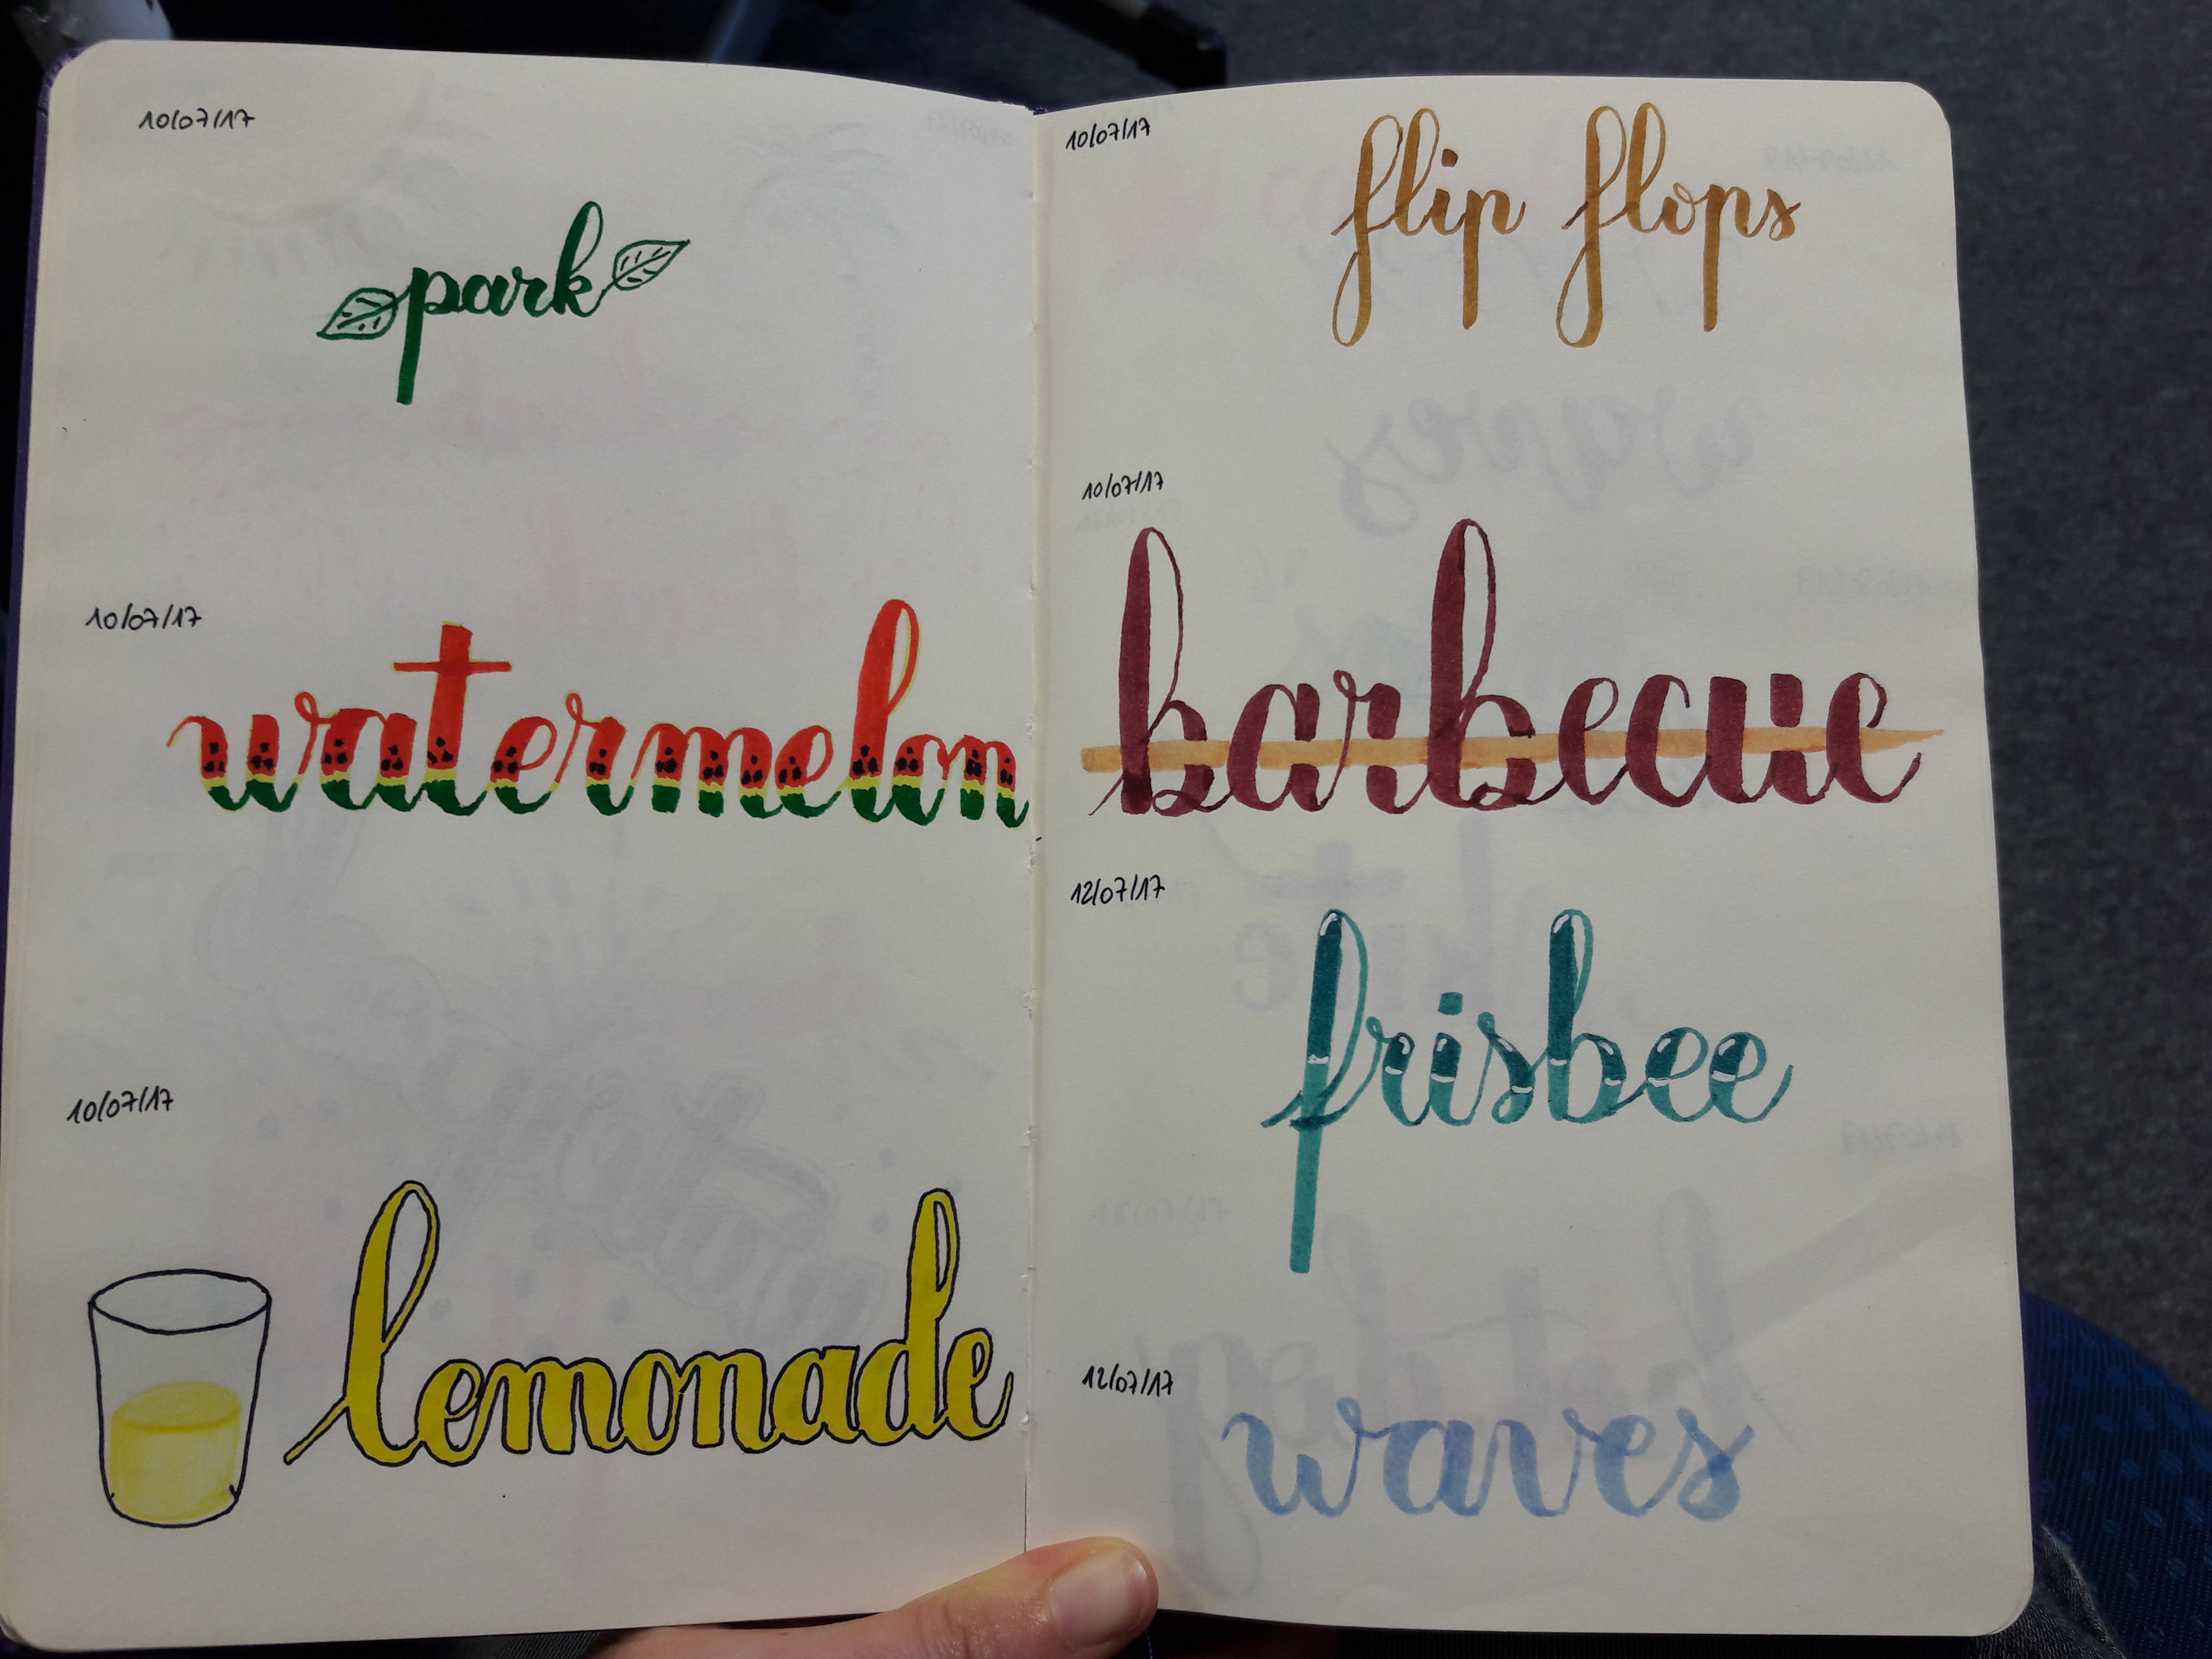 10/07/17
park
10/07/17
watermelon
10/07/17
lemonade
10/07/17
flip flops
10/07/17
barbecue
12/07/17
frisbee
12/07/17
waves